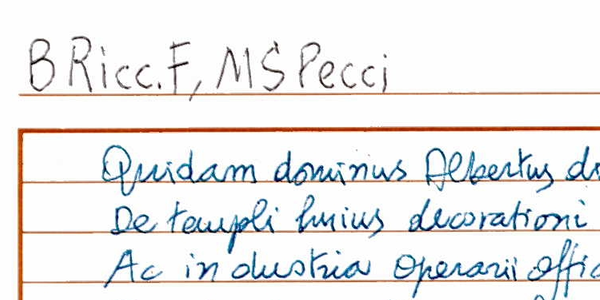 B Ricc. F, MS Pecci
Quidam dominus Albertus
De templi huius decorationi
Ac industria operarii